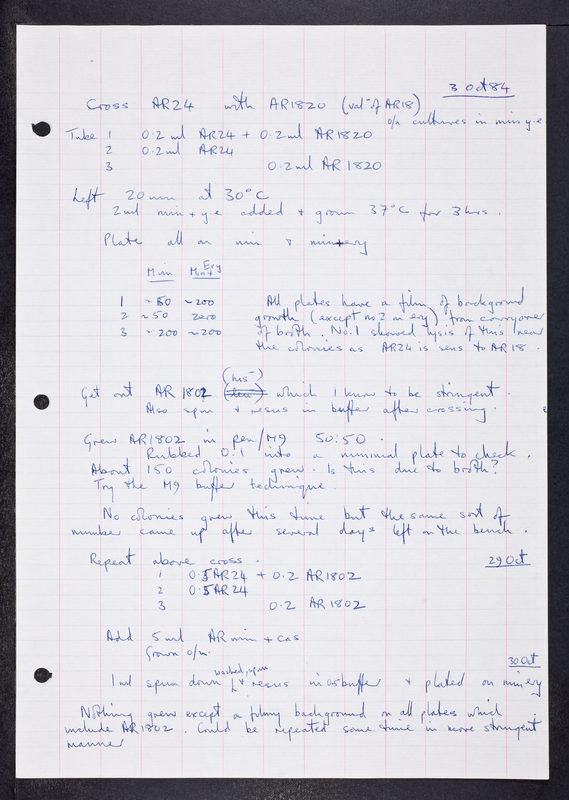 3 Oct 84
Cross AR24 with AR1820 (val⁻ of AR18)
o/n cultures in min y.e
Tube 1 0.2 ml AR24 + 0.2 ml AR1820
2 0.2 ml AR24
3 0.2 ml AR1820
Left 20 min at 30°C
2 ml min + y.e added & grown 37°C for 3 hrs.
Plate all on min & min+ery
Min Min+Ery
1 ~50 ~200 All plates have a film of background
2 ~50 zero growth (except no 2 on ery) from carryover
3 ~200 ~200 of broth. No. 1 showed lysis of this near
the colonies as AR24 is sens to AR18.
(his⁻)
Get out AR1802 which I know to be stringent.
Also spin & resus in buffer after crossing.
Grew AR1802 in pen/M9 50:50.
Rubbed 0.1 into a minimal plate to check.
About 150 colonies grew. Is this due to broth?
Try the M9 buffer technique.
No colonies grew this time but the same sort of
number came up after several days left on the bench.
Repeat above cross. 29 Oct
1 0.5 AR24 + 0.2 AR1802
2 0.5 AR24
3 0.2 AR1802
Add 5 ml AR min + cas
Grown o/n.
30 Oct
1 ml spun down washed, spun & resus in buffer & plated on min ery
Nothing grew except a filmy background on all plates which
include AR1802. Could be repeated some time in more stringent
manner